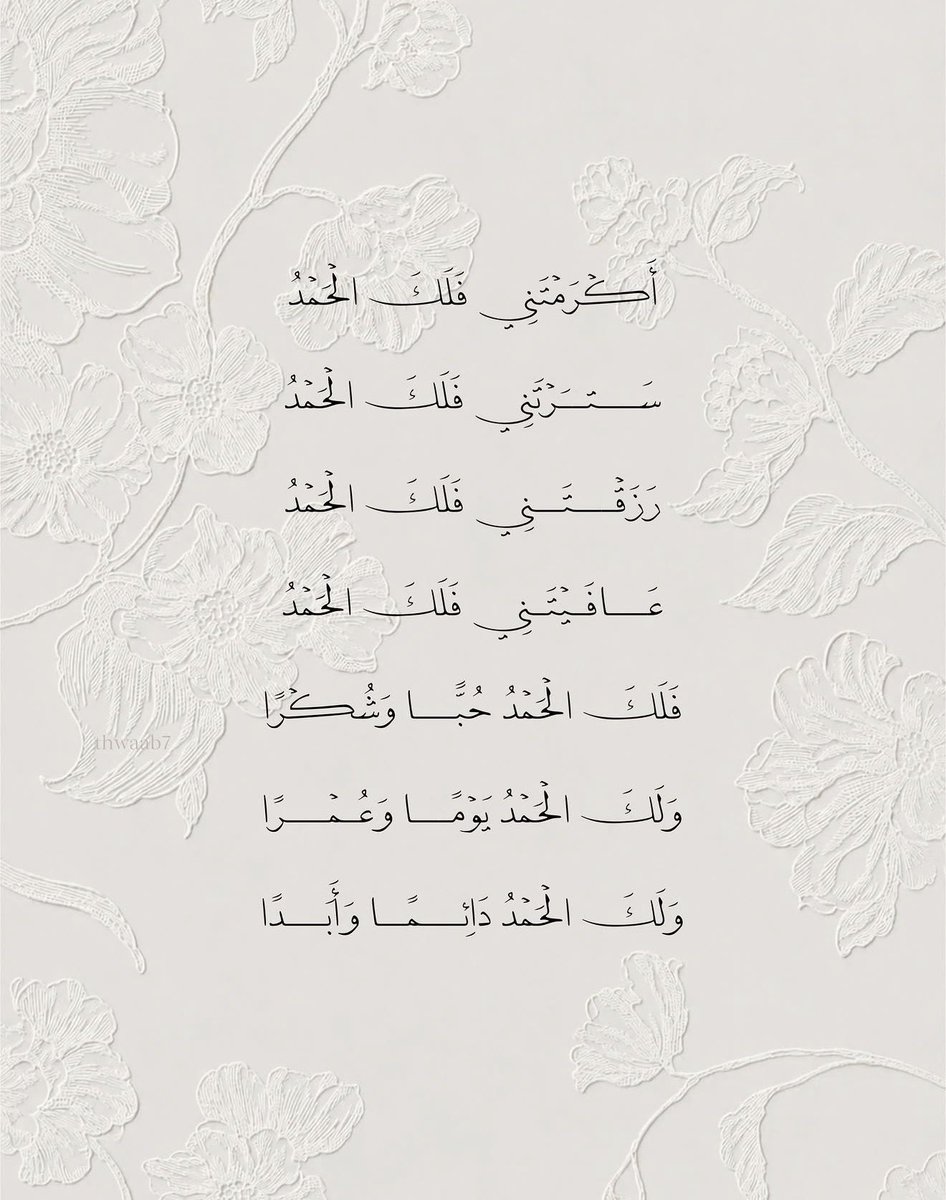 أَكْرَمْتَنِي فَلَكَ الْحَمْدُ
سَتَرْتَنِي فَلَكَ الْحَمْدُ
رَزَقْتَنِي فَلَكَ الْحَمْدُ
عَافَيْتَنِي فَلَكَ الْحَمْدُ
فَلَكَ الْحَمْدُ حُبًّا وَشُكْرًا
thwaab7
وَلَكَ الْحَمْدُ يَوْمًا وَعُمْرًا
وَلَكَ الْحَمْدُ دَائِمًا وَأَبَدًا